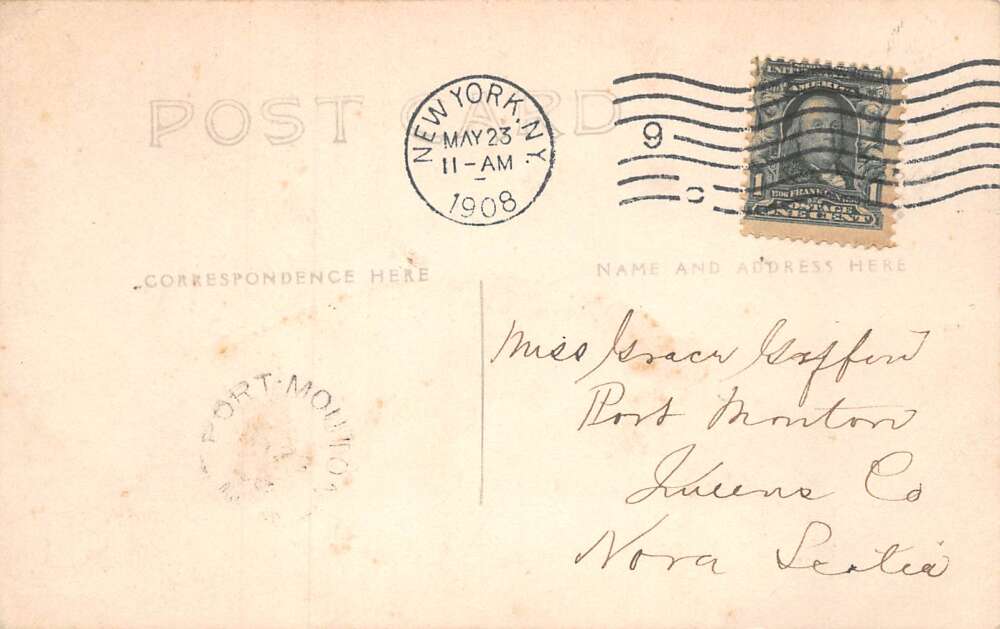 POST CARD
NEW YORK, N.Y.
MAY 23
11-AM
1908
9
UNITED STATES OF AMERICA
1 FRANKLIN 1
POSTAGE
ONE CENT
CORRESPONDENCE HERE
NAME AND ADDRESS HERE
Miss Grace
Port Mouton
Queens Co
Nova Scotia
PORT-MOUTON